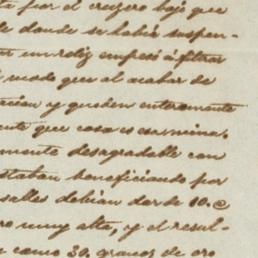 te por el crucero bajo que
e donde se habia suspen-
tar un reliz empesó á filtrar
modo que al acabar de
acion y queden enteramente
ente que cosa es carmina,
mente desagradable con
staban beneficiando por
selles debian dar de 10. @
ro muy alta, y el resul-
n como 30. granos de oro